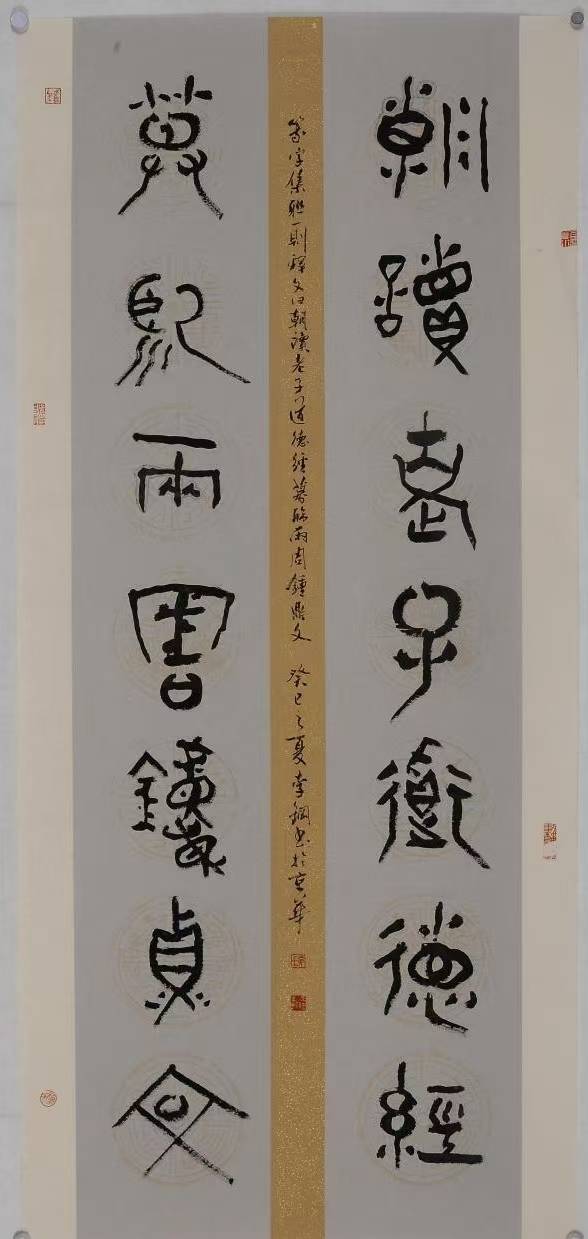 朝讀老子道德經
篆字集聯一則釋文曰朝讀老子道德經暮臨兩周鐘鼎文 癸巳之夏李鋼書於京華
暮臨兩周鐘鼎文